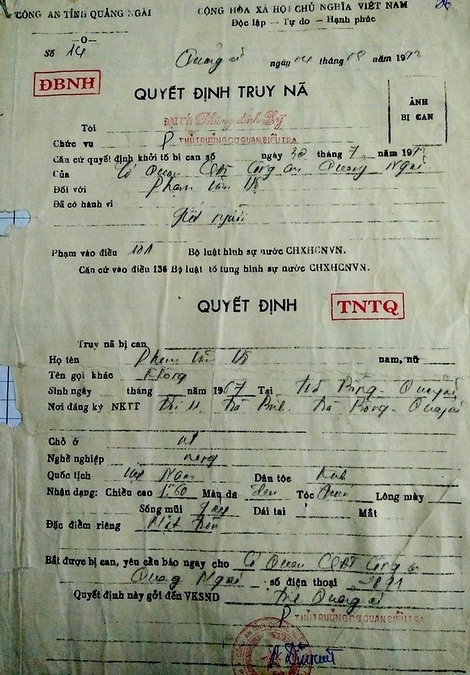 CÔNG AN TỈNH QUẢNG NGÃI
CỘNG HÒA XÃ HỘI CHỦ NGHĨA VIỆT NAM
Độc lập — Tự do — Hạnh phúc
—o—
Số 14
Quảng ngày 04 tháng 08 năm 1992
ĐBNH
QUYẾT ĐỊNH TRUY NÃ
ẢNH
BỊ CAN
Tôi ĐẠI ÚY
Chức vụ P THỦ TRƯỞNG CƠ QUAN ĐIỀU TRA
Căn cứ quyết định khởi tố bị can số ngày 30 tháng 7 năm 199
Của Cơ Quan CSĐT Công an Quảng Ngãi
Đối với Phạm Văn
Đã có hành vi
Giết người
Phạm vào điều 101 Bộ luật hình sự nước CHXHCNVN.
Căn cứ vào điều 136 Bộ luật tố tụng hình sự nước CHXHCNVN.
QUYẾT ĐỊNH
TNTQ
Truy nã bị can
Họ tên Phạm Văn nam, nữ
Tên gọi khác Không
Sinh ngày tháng năm 1967 Tại Trà Bồng - Quảng
Nơi đăng ký NKTT Trà Trà Bồng - Quảng
Chỗ ở nt
Nghề nghiệp nông
Quốc tịch Việt Nam Dân tộc Kinh
Nhận dạng: Chiều cao 1m60 Màu da đen Tóc Lông mày
Sống mũi Dái tai Mắt
Đặc điểm riêng
Bắt được bị can, yêu cầu báo ngay cho Cơ Quan CSĐT Công an
Quảng Ngãi số điện thoại
Quyết định này gởi đến VKSND Quảng
P THỦ TRƯỞNG CƠ QUAN ĐIỀU TRA